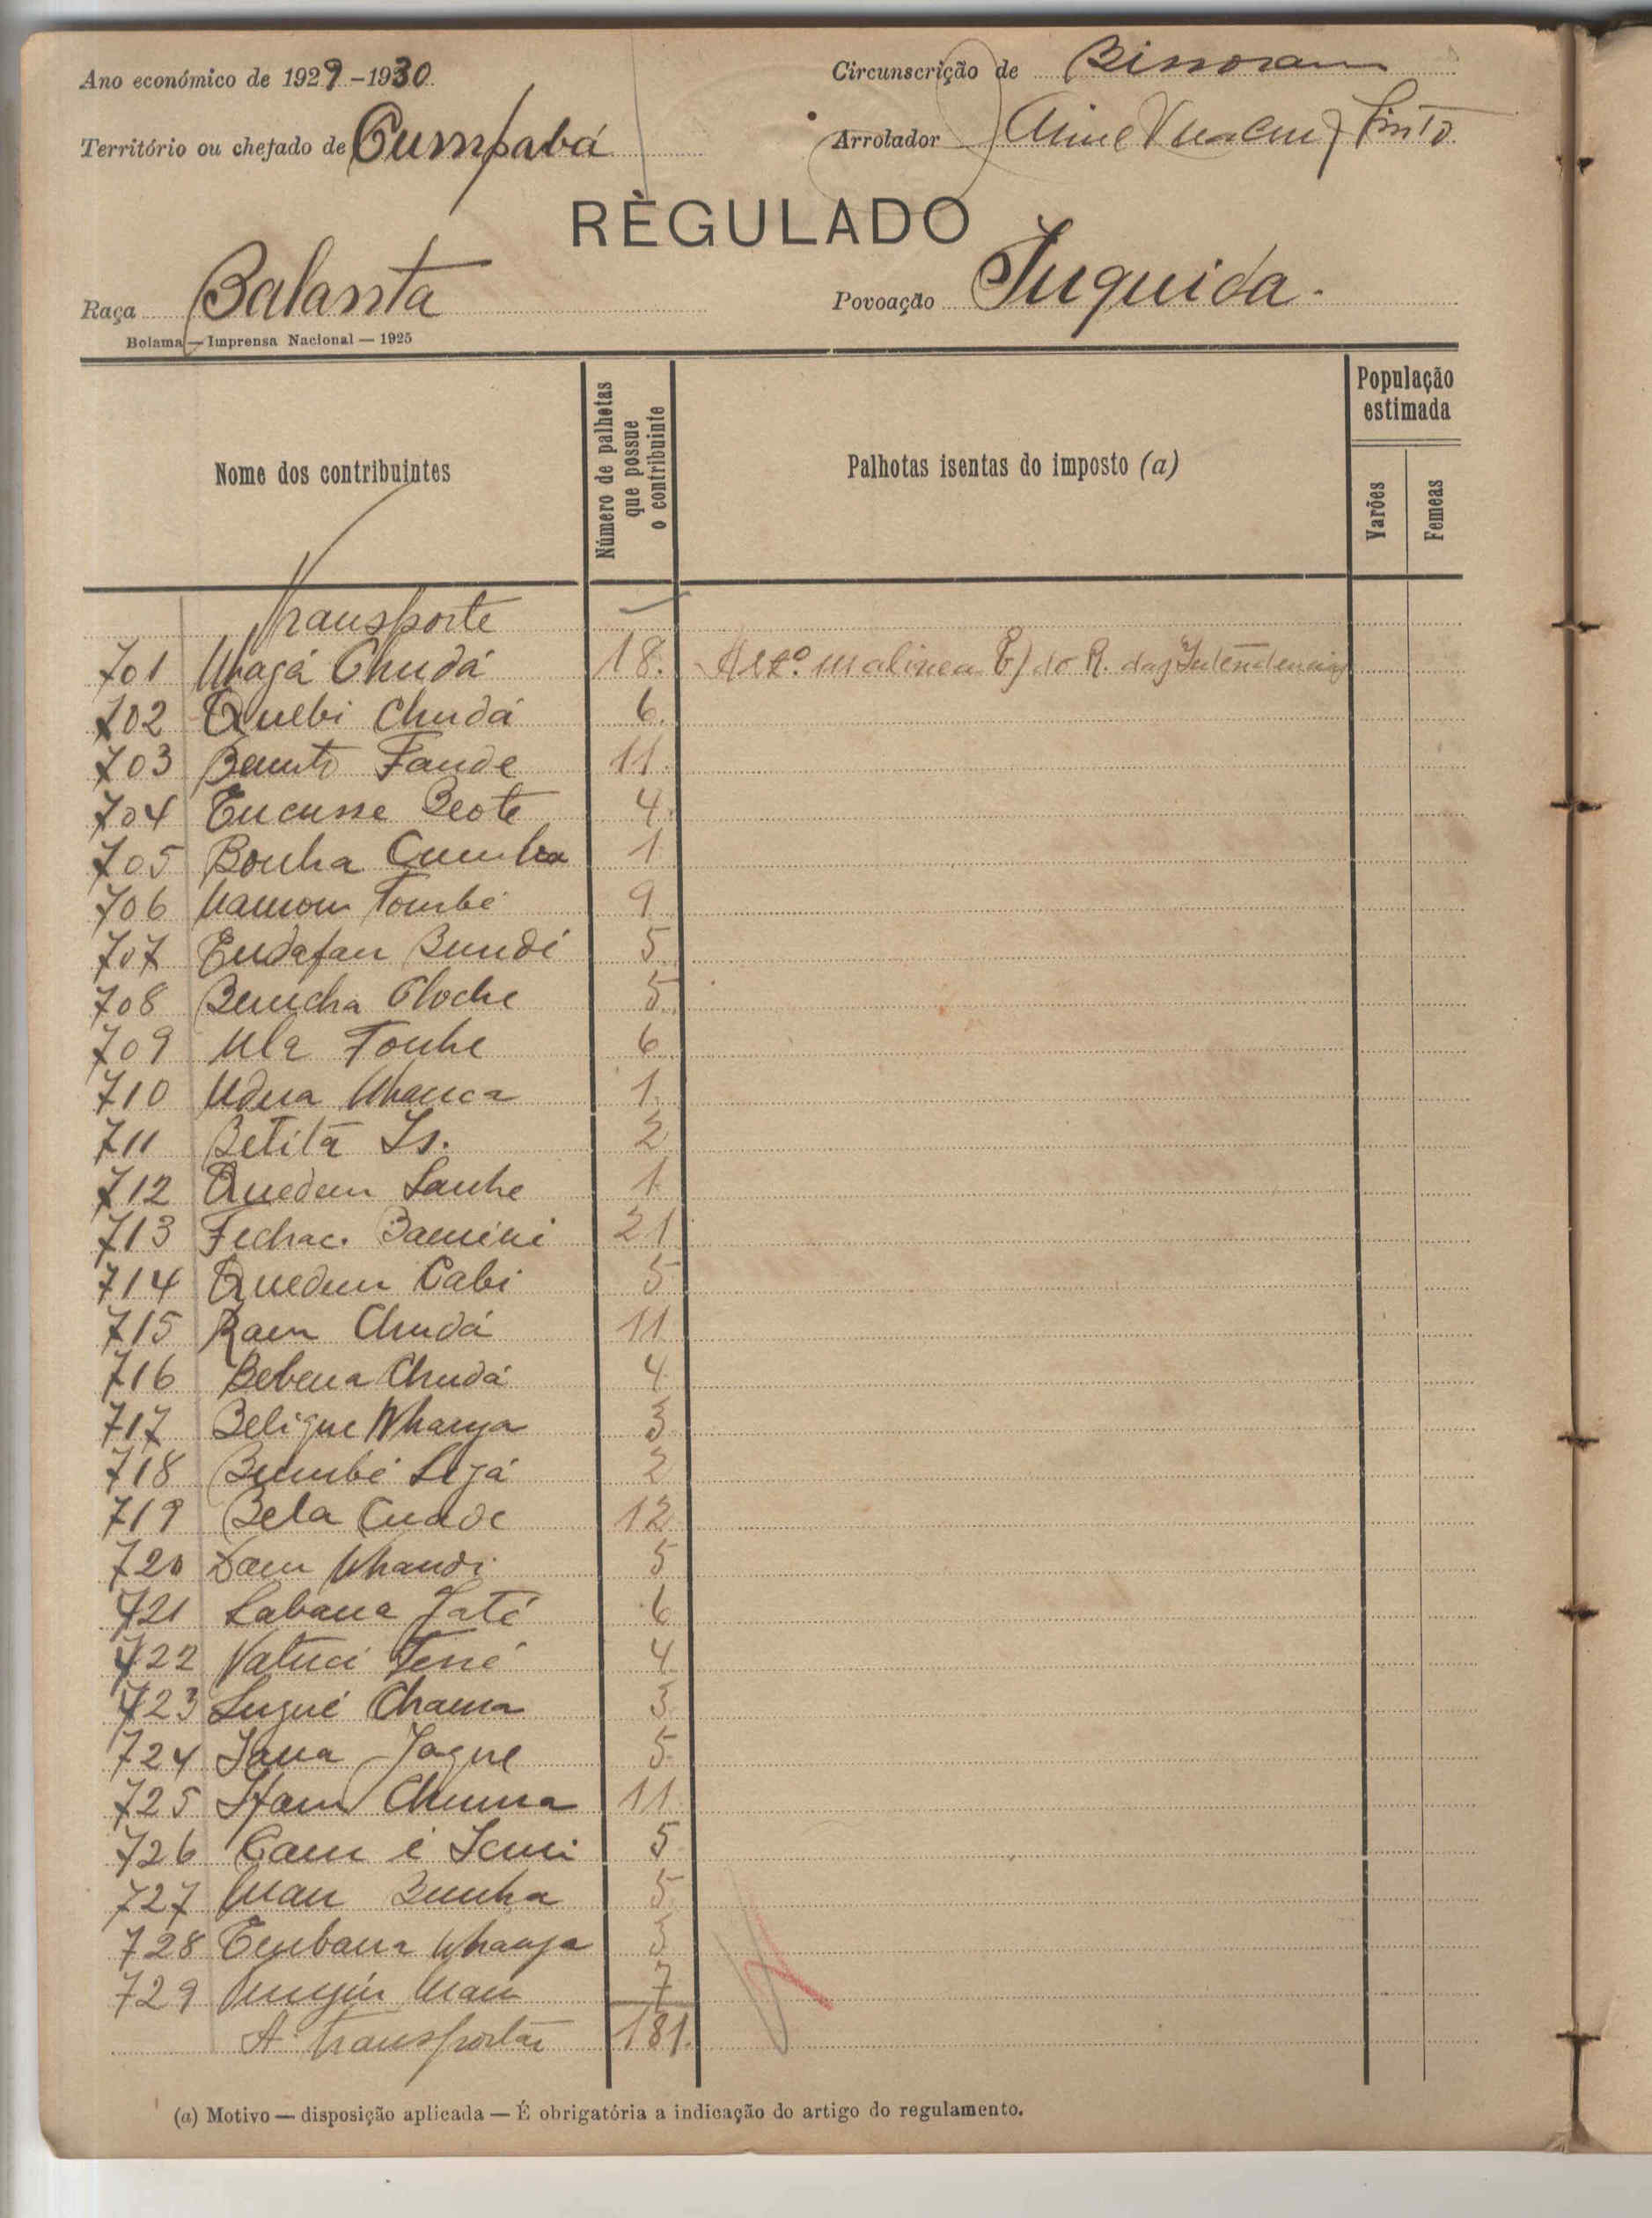 Ano económico de 1929-1930
Circunscrição de Bissoram
Território ou chefado de Cumpabá
Arrotador Pinto
RÈGULADO
Raça Balanta
Povoação Iuquida.
Bolama — Imprensa Nacional — 1925
Nome dos contribuintes
Número de palhetas que possue o contribuinte
Palhotas isentas do imposto (a)
População estimada
Varões
Femeas
Transporte —
701 Uhagá Chudá 18. do R. das Intendencias
702 Quebi Chudá 6.
703 Bemto Fande 11.
704 Encusse Beote 4.
705 Bonha Cumba 1
706 Mamom Tombé 9
707 Endafan Bundi 5
708 Bencha Cloche 5.
709 Ula Tonhe 6
710 Udna Uhanca 1.
711 Betitã Is. 2
712 Quedem Sanhe 1.
713 Fechac. Bamini 21
714 Quedem Cabi 5
715 Ram Chudá 11
716 Bebena Chudá 4
717 Beligue Nhanga 3
718 Bumbé 2
719 Bela Cuade 12
720 Dam Nhandi 5
721 Labana Jaté 6
722 Natuci 4
723 Sugué Chama 3
724 Iana Jogue 5
725 Chumna 11
726 Cam é 5
727 Uan Bunha 5
728 Enbana Whanga 5
729 Uan 7
A transportar 181.
(a) Motivo — disposição aplicada — É obrigatória a indicação do artigo do regulamento.